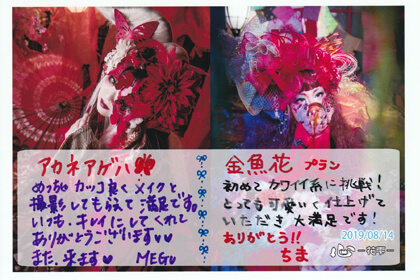 アカネアゲハ
めっちゃカッコ良くメイクと
撮影してもらえて満足です。
いつも、キレイにしてくれて
ありがとうございます
また、来ます♥ MEGU
金魚花 プラン
初めてカワイイ系に挑戦!
とっても可愛いく仕上げて
いただき大満足です!
ありがとう!!
ちま
2019/08/14
心 一花手一